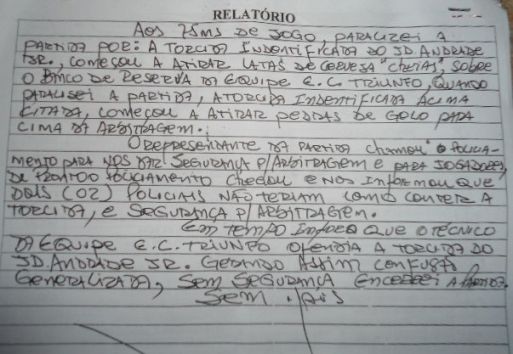 RELATÓRIO
AOS 75MS DE JOGO, PARALIZEI A
PARTIDA POR: A TORCIDA INDENTIFICADA DO JD ANDRADE
JR., COMEÇOU A ATIRAR LATAS DE CERVEJA "CHEIAS", SOBRE
O BANCO DE RESERVA DA EQUIPE E.C. TRIUNFO, QUANDO
PARALISEI A PARTIDA, A TORCIDA INDENTIFICADA ACIMA
CITADA, COMEÇOU A ATIRAR PEDRAS DE GELO PARA
CIMA DA ARBITRAGEM.
O REPRESENTANTE DA PARTIDA CHAMOU O POLICIA-
MENTO PARA NOS DAR SEGURANÇA P/ ARBITRAGEM E PARA JOGADORES,
DE PRONTO O POLICIAMENTO CHEGOU E NOS INFORMOU QUE
DOIS (02) POLICIAIS NÃO TERIAM COMO CONTER A
TORCIDA, E SEGURANÇA P/ ARBITRAGEM.
EM TEMPO INFORMO QUE O TÉCNICO
DA EQUIPE E.C. TRIUNFO OFENDIA A TORCIDA DO
JD ANDRADE JR. GERANDO ASSIM CONFUSÃO
GENERALIZADA, SEM SEGURANÇA ENCERREI A PARTIDA.
SEM MAIS